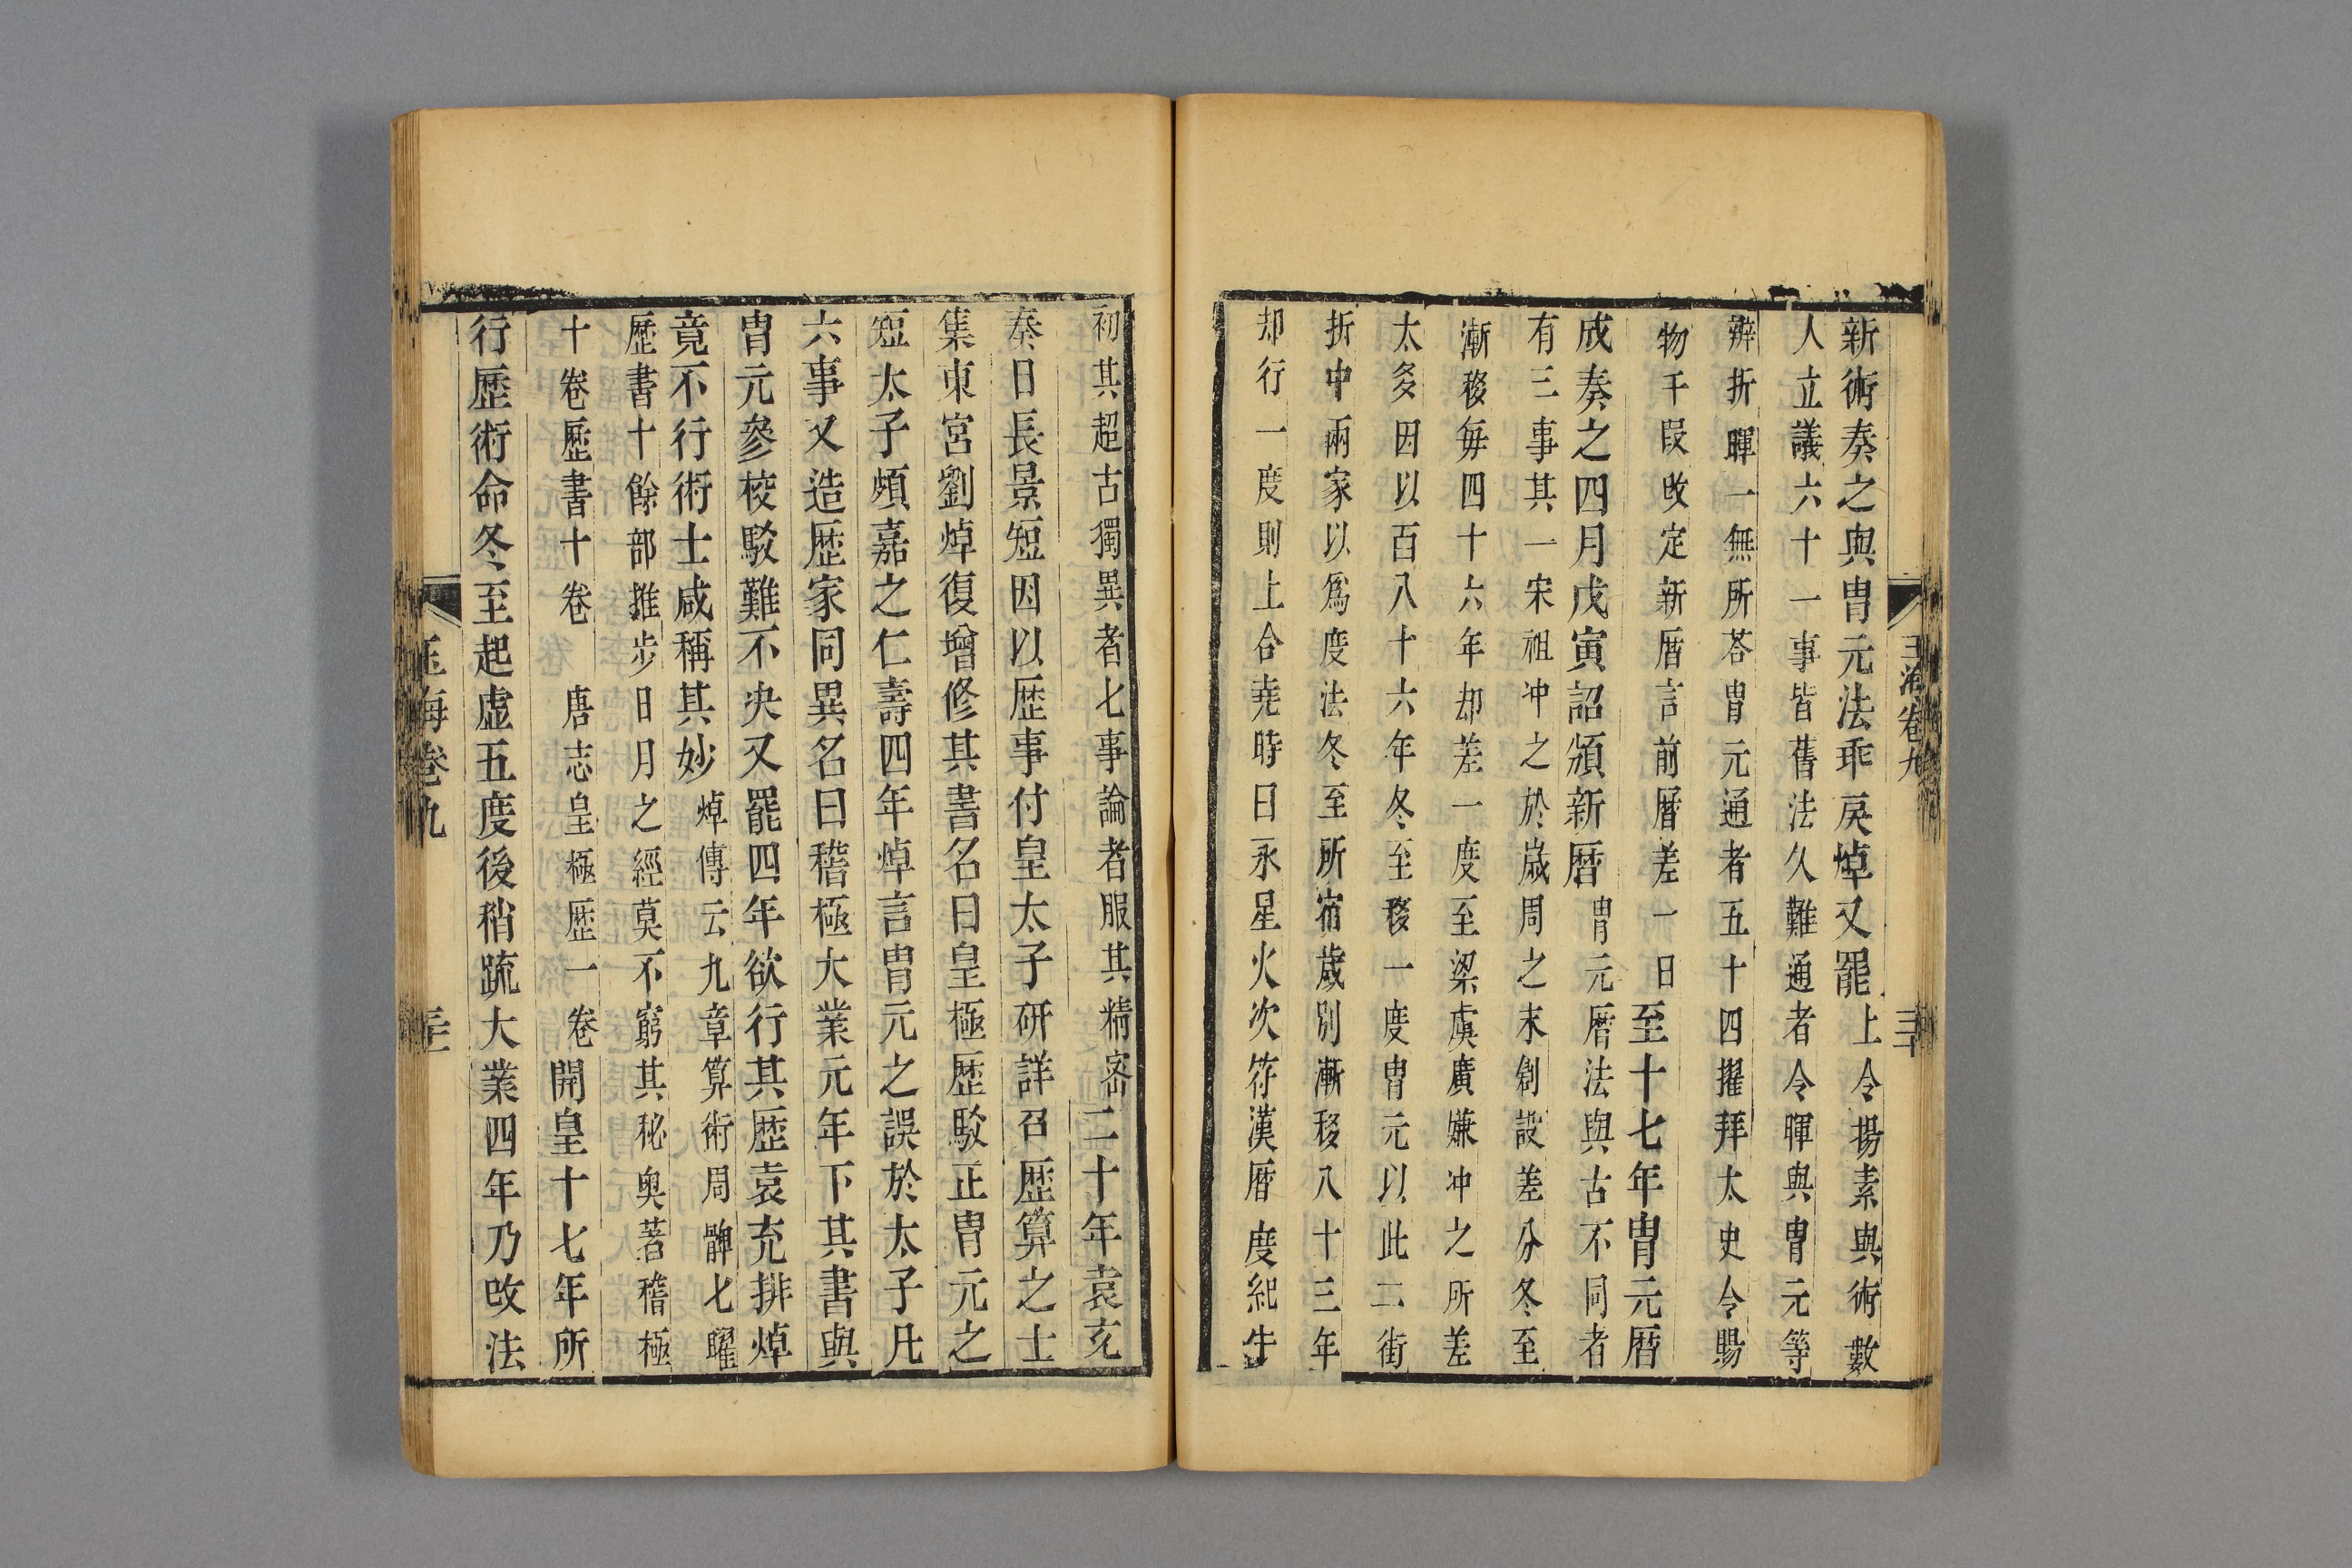 玉海卷九
三十
新術奏之與冑元法乖戾焯又罷上令揚素與術數
人立議六十一事皆舊法久難通者令暉與冑元等
辨折暉一無所荅冑元通者五十四擢拜太史令賜
物千段改定新暦言前暦差一日至十七年冑元暦
成奏之四月戊寅詔頒新暦冑元暦法與古不同者
有三事其一宋祖冲之於歲周之末創設差分冬至
漸移每四十六年却差一度至梁虞廣嫌冲之所差
太多因以百八十六年冬至移一度冑元以此二街
折中兩家以爲度法冬至所宿歲别漸移八十三年
却行一度則上合堯時日永星火次符漢暦度紀牛
初其超古獨異者七事論者服其精密二十年袁充
奏日長景短因以歴事付皇太子研詳召歴算之士
集東宮劉焯復增修其書名曰皇極歴駁正冑元之
短太子頗嘉之仁壽四年焯言冑元之誤於太子凡
六事又造歴家同異名曰稽極大業元年下其書與
冑元參校駁難不決又罷四年欲行其歴袁充排焯
竟不行術士咸稱其妙焯傳云九章算術周髀七曜
歴書十餘部推步日月之經莫不窮其秘奥著稽極
十卷歴書十卷 唐志皇極歴一卷開皇十七年所
行歴術命冬至起虛五度後稍䟽大業四年乃改法
玉海卷九